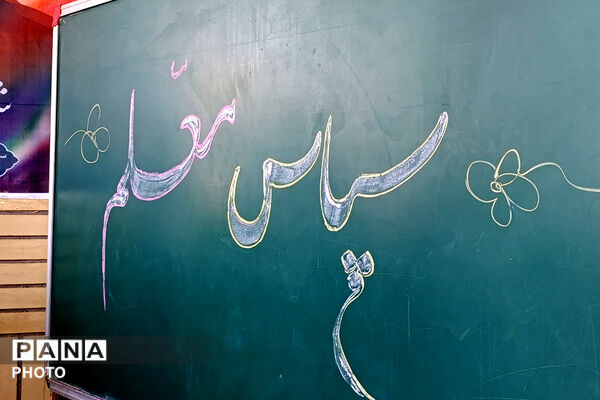 سپاس معلّم
PANA
PHOTO